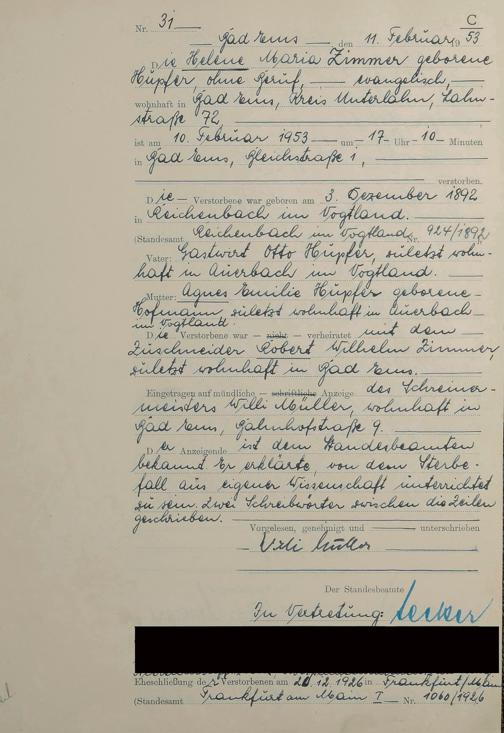 C
Nr. 31
Bad Ems, den 11. Februar 19 53
Die Helene Maria Zimmer geborene
Hüpfer, ohne Beruf, — evangelisch,
wohnhaft in Bad Ems, Kreis Unterlahn, Lahn-
straße 72,
ist am 10. Februar 1953 um 17 Uhr 10 Minuten
in Bad Ems, Bleichstraße 1,
verstorben.
Die Verstorbene war geboren am 3. Dezember 1892
in Reichenbach im Vogtland.
(Standesamt Reichenbach im Vogtland Nr. 924/1892
Vater: Gastwirt Otto Hüpfer, zuletzt wohn-
haft in Auerbach im Vogtland.
Mutter: Agnes Emilie Hüpfer geborene
Hofmann, zuletzt wohnhaft in Auerbach
im Vogtland.
Die Verstorbene war — nicht — verheiratet mit dem
Zuschneider Robert Wilhelm Zimmer,
zuletzt wohnhaft in Bad Ems.
Eingetragen auf mündliche — schriftliche Anzeige des Schreiner-
meisters Willi Müller, wohnhaft in
Bad Ems, Bahnhofstraße 9.
Der Anzeigende ist dem Standesbeamten
bekannt. Er erklärte, von dem Sterbe-
fall aus eigener Wissenschaft unterrichtet
zu sein. Zwei Schreibwörter zwischen die Zeilen
geschrieben.
Vorgelesen, genehmigt und unterschrieben
Willi Müller
Der Standesbeamte
In Vertretung:
Eheschließung der Verstorbenen am 20.12.1926 in Frankfurt/Main
(Standesamt Frankfurt am Main I Nr. 1060/1926